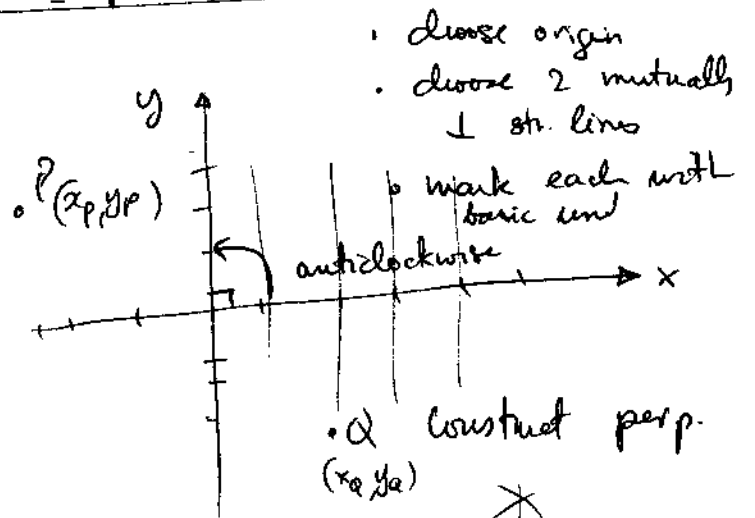 • choose origin
• choose 2 mutually
⊥ str. lines
y
• mark each with
basic unit
P(xp, yp)
anticlockwise
x
• Q construct perp.
(xQ yQ)